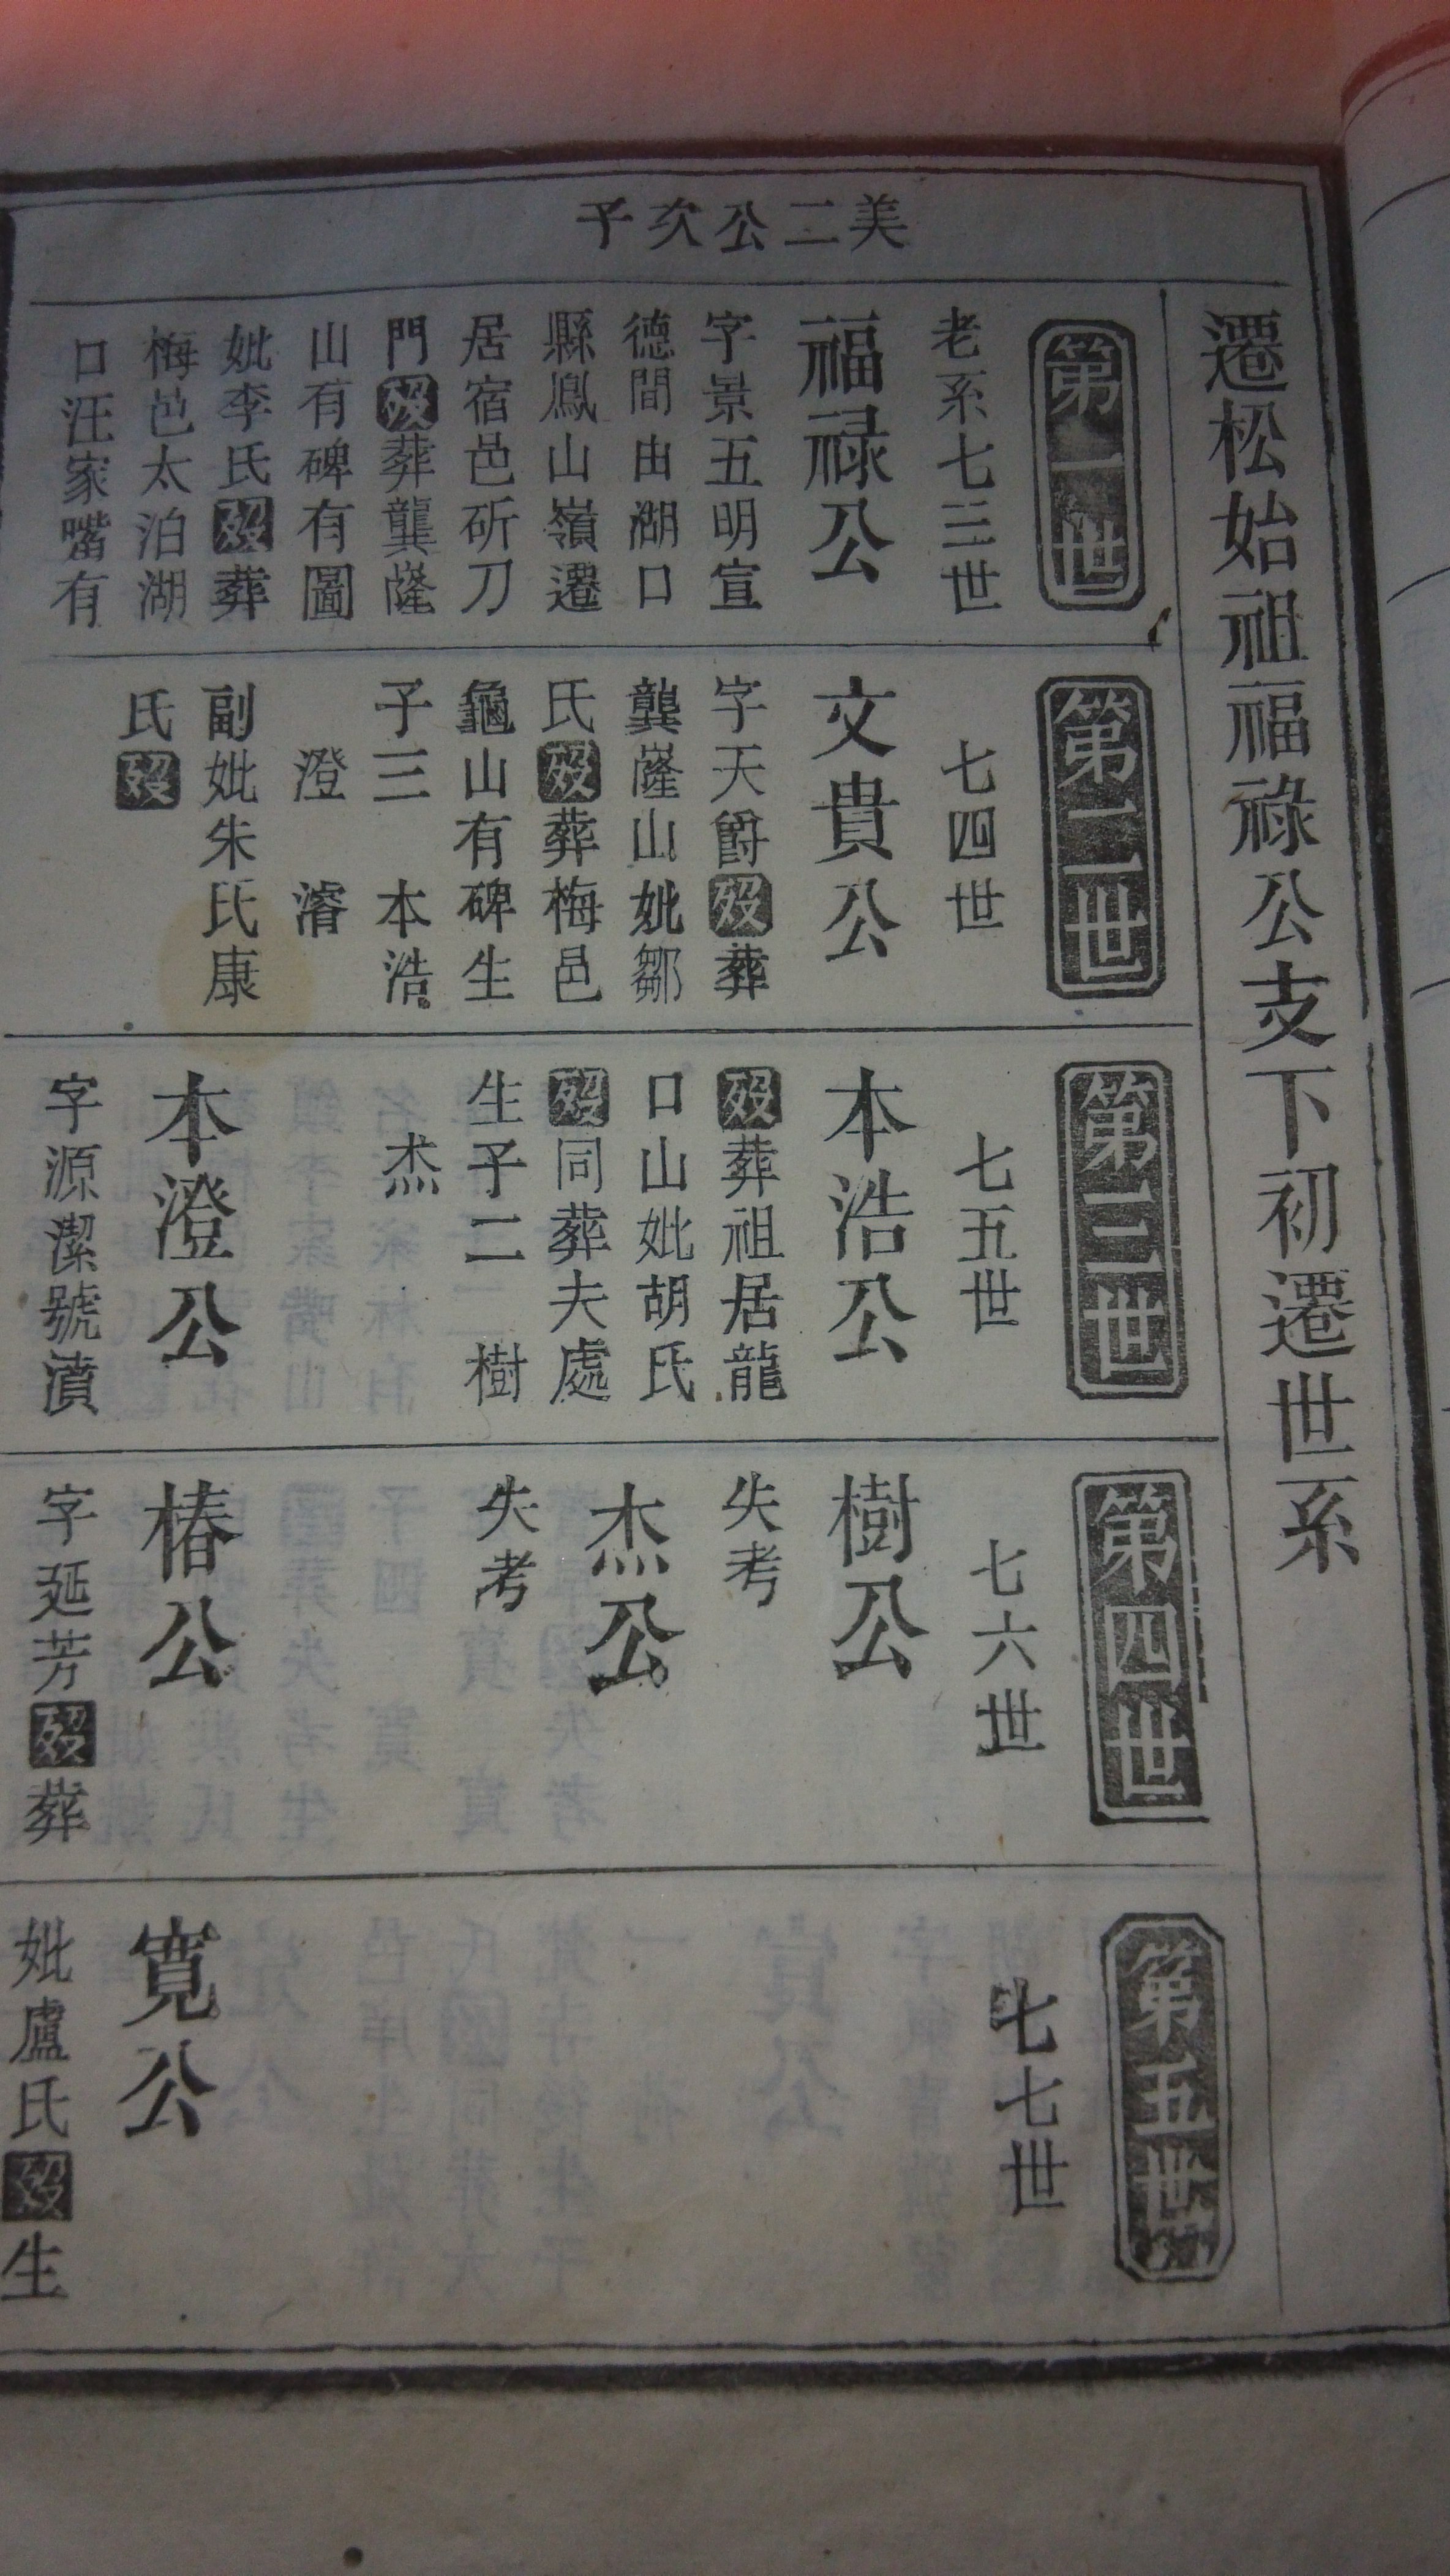 遷松始祖福祿公支下初遷世系
美二公次子
第一世
老系七三世
福禄公
字景五明宣
德間由湖口
縣鳳山嶺遷
居宿邑斫刀
門歿葬龔窿
山有碑有圖
妣李氏歿葬
梅邑太泊湖
口汪家嘴有
第二世
七四世
文貴公
字天爵歿葬
龔窿山妣鄒
氏歿葬梅邑
龜山有碑生
子三 本浩
澄 濬
副妣朱氏康
氏歿
第三世
七五世
本浩公
歿葬祖居龍
口山妣胡氏
歿同葬夫處
生子二 樹
杰
本澄公
字源潔號濆
第四世
七六世
樹公
失考
杰公
失考
椿公
字延芳歿葬
第五世
七七世
寬公
妣盧氏歿生